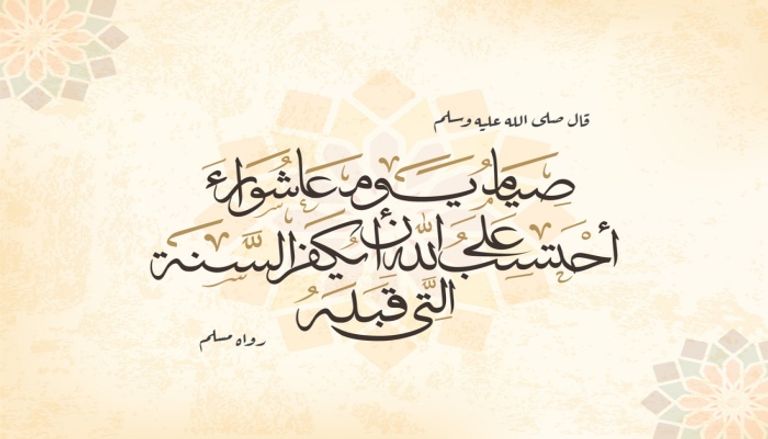 قال صلى الله عليه وسلم
صِيَامُ يَوم عَاشُورَاءَ
أحْتَسِبُ عَلَى اللَّهِ أَنْ يُكَفِّرَ السَّنَةَ
الَّتِي قَبْلَهُ
رواه مسلم